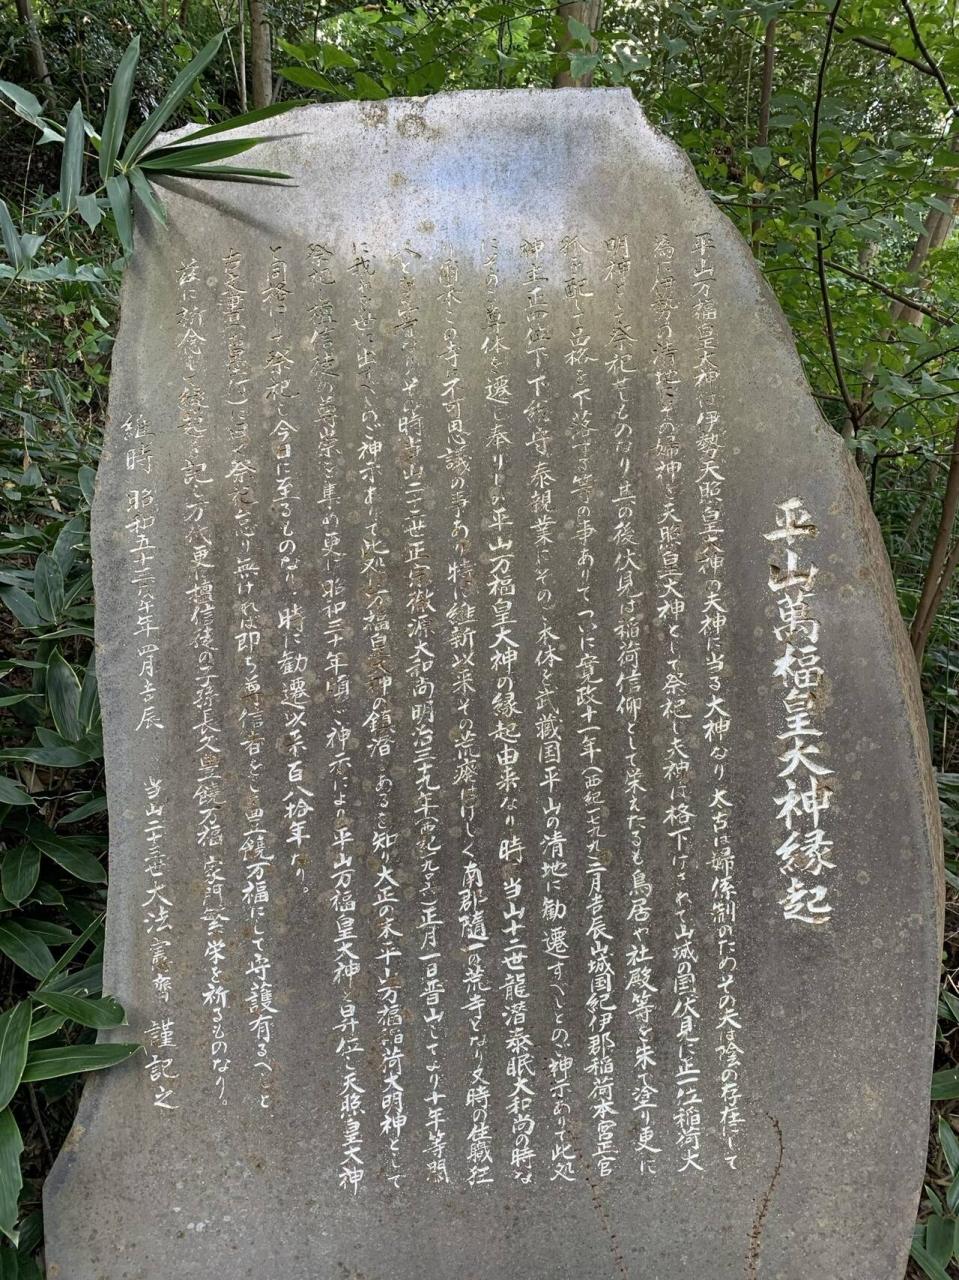 平山萬福皇大神縁起
平山万福皇大神は伊勢天照皇大神の夫神に当る大神なり大古は婦係制のためその夫は陰の存在にして
為に伊勢の清地にその婦神を天照皇大神として祭祀し夫神は格下げされて山城の国伏見に正一位稲荷大
明神として祭祀せしものなり其の後伏見は稲荷信仰として栄えたるも鳥居や社殿等を朱で塗り更に
を配し品格を下落する等の事ありてついに寛政十一年(西紀一七九九)二月吉辰山城国紀伊郡稲荷本宮正官
神主正四位下下総守泰親業にその御本体を武蔵国平山の清地に勧遷すべしとの御神示ありて此処
にその御尊体を遷し奉りしが平山万福皇大神の縁起由来なり時 当山十二世龍潜泰眠大和尚の時な
り 爾来この寺は不可思議の事あり特に維新以来その荒癈はげしく南郡随一の荒寺となり又時の住職狂
その時当山二十二世正宗徹源大和尚明治三十九年(西紀一九〇六)正月一日晋山してより十年等閑
に我を世に出すべしのご神示ありて此処に万福皇大神の鎮潜あるを知り大正の末平山万福稲荷大明神として
祭祀 檀信徒の尊崇を集め更に昭和二十年頃ご神示により平山万福皇大神と昇位し天照皇大神
と同格にして祭祀し今日に至るものなり。時に勧遷以来百八拾年なり。
古文書によつ祭祀怠り無ければ即ち尊信者をと豊饒万福にして守護有るべしと
茲に祈念して縁起を記し万代更に檀信徒の子孫長久皇饒万福 家門繁栄を祈るものなり。
維時 昭和五十三年四月吉辰 当山二十三世大法憲齊 謹記之